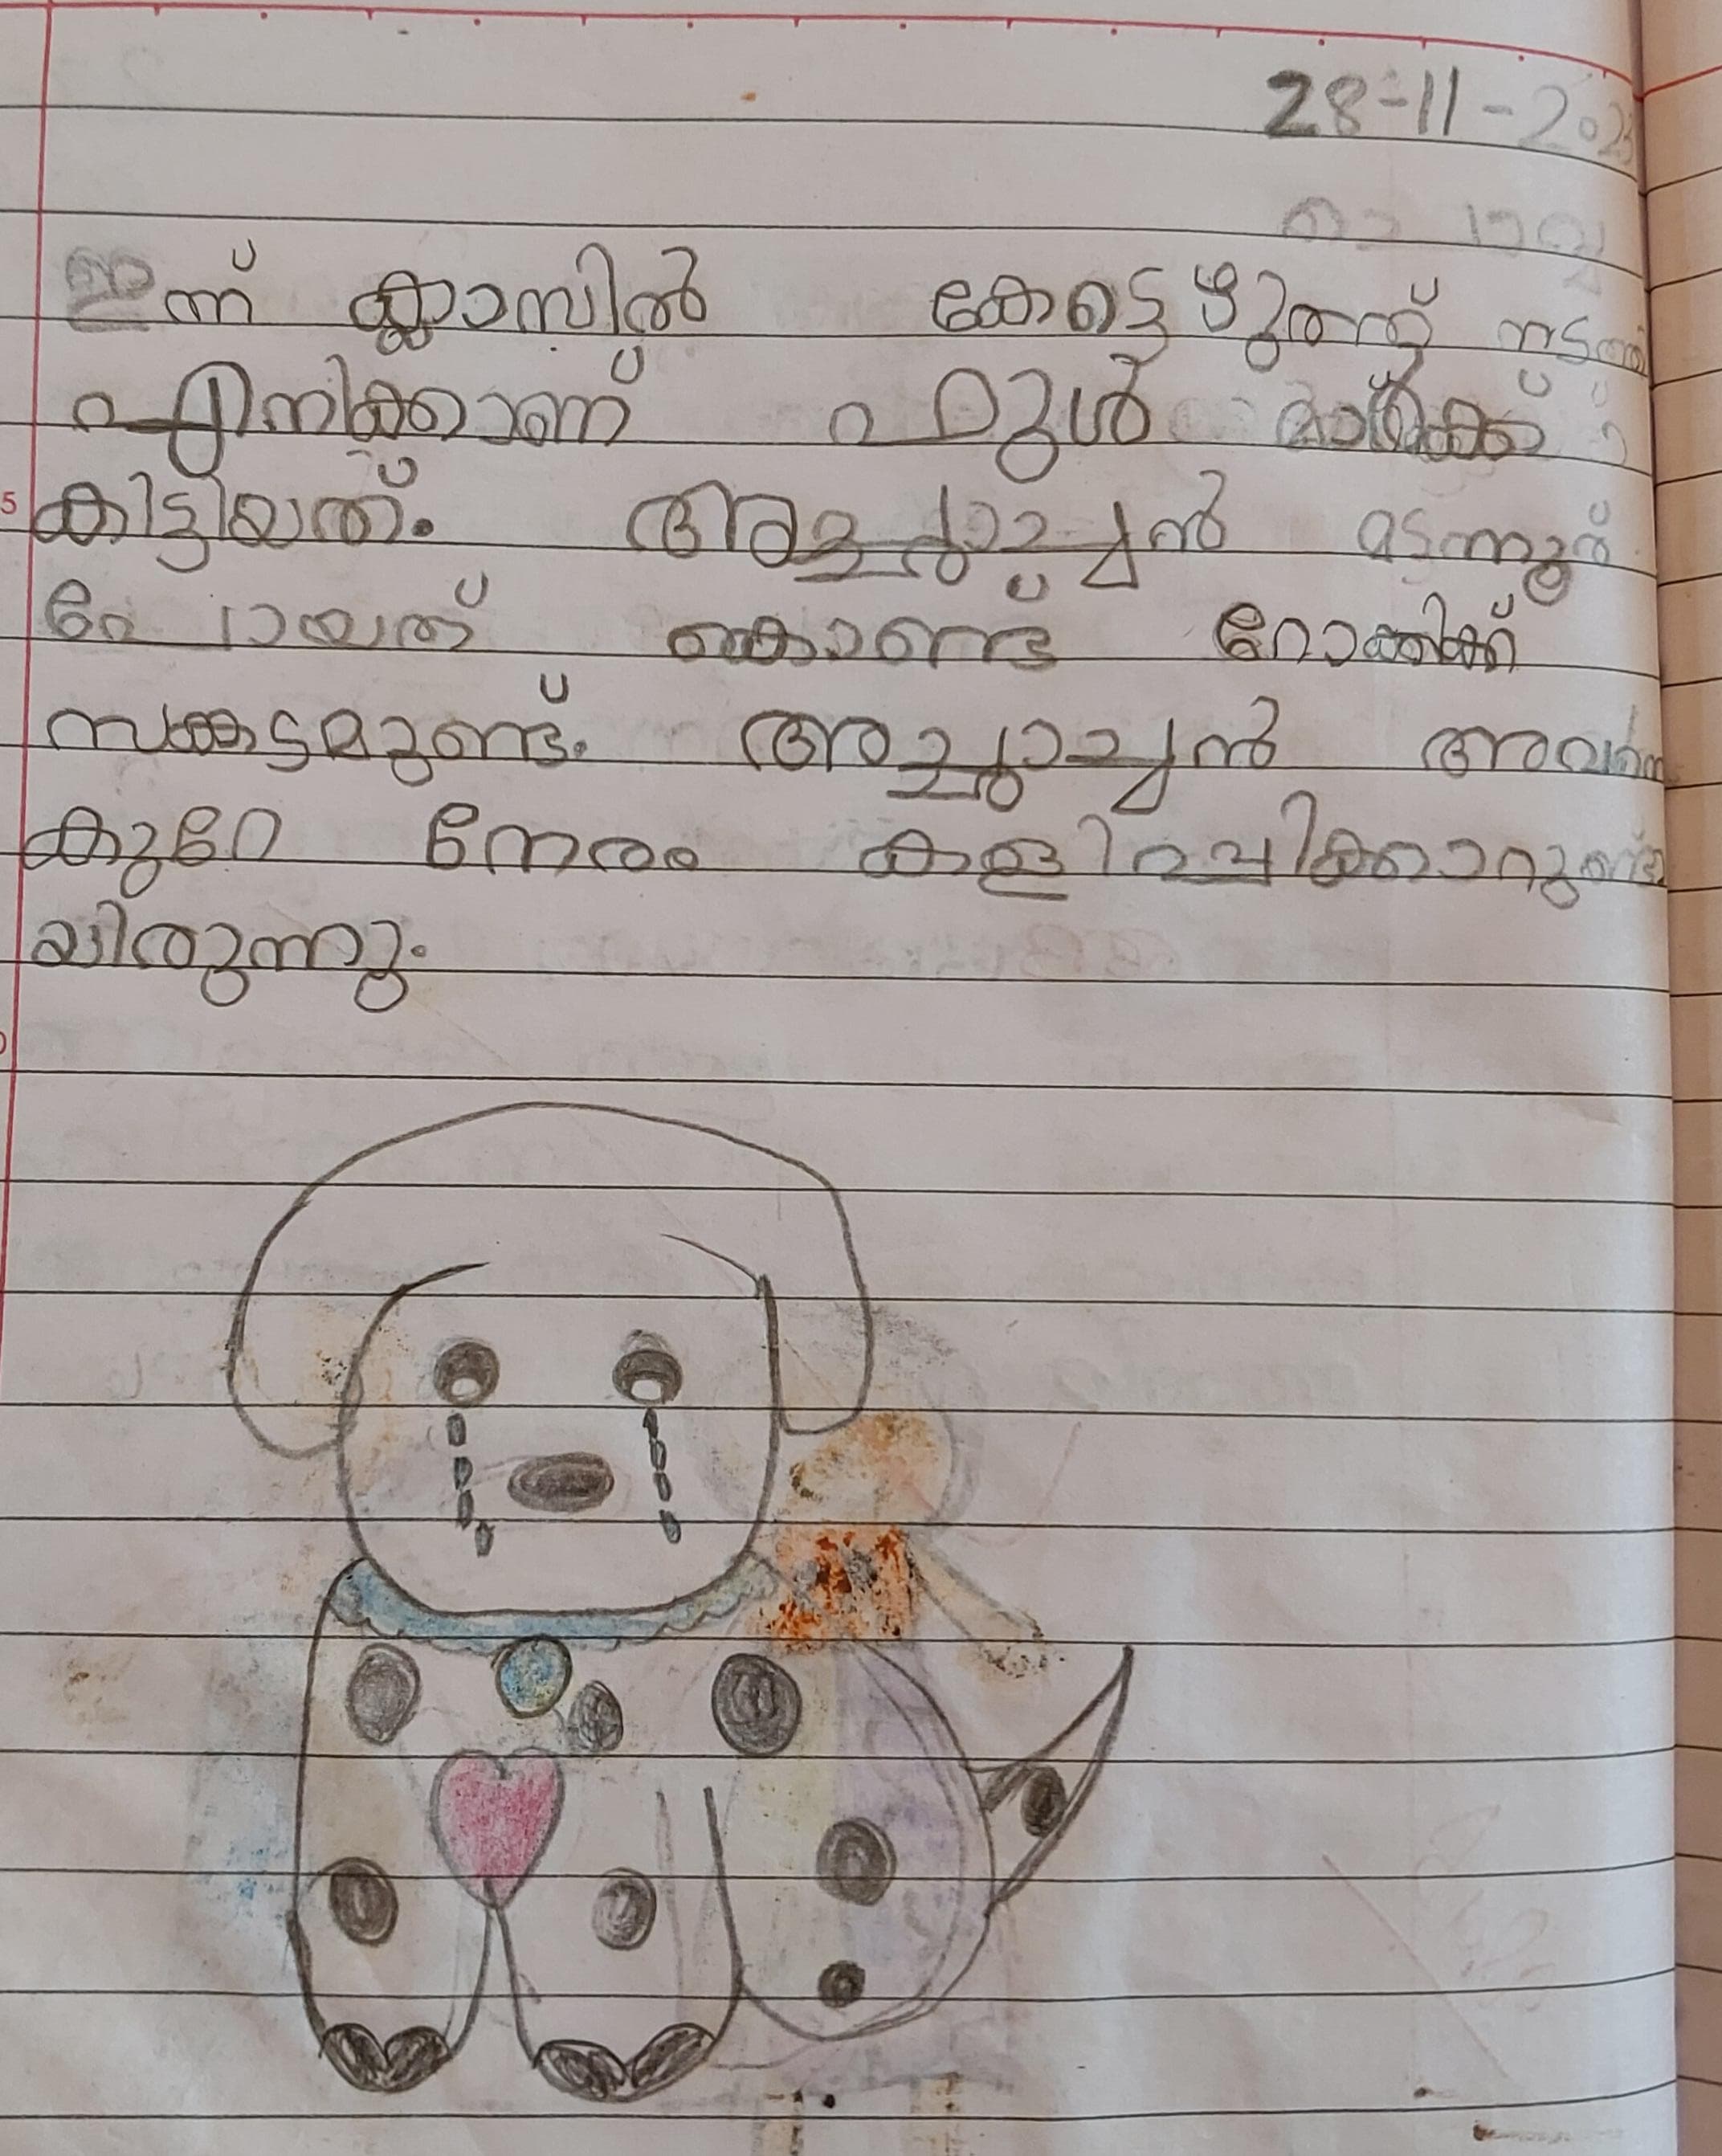 28-11-202
ഇന്ന് ക്ലാസിൽ കേട്ടെഴുത്ത് നടത്തി
എനിക്കാണ് ഫുൾ മാർക്ക്
കിട്ടിയത്. അച്ചാച്ചൻ മടന്നൂർ
പോയത് കൊണ്ട് റോക്കിക്ക്
സങ്കടമുണ്ട്. അച്ചാച്ചൻ അവനെ
കുറേ നേരം കളിപ്പിക്കാറുണ്ടാ
യിരുന്നു.